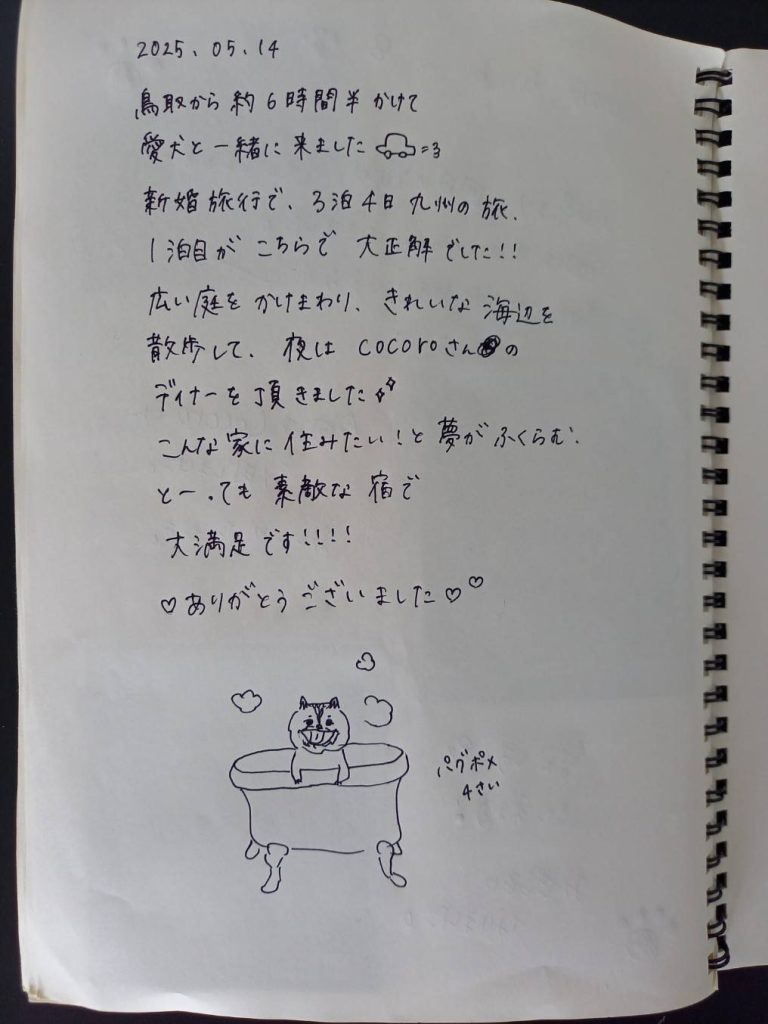 2025. 05. 14
鳥取から約6時間半かけて
愛犬と一緒に来ました =3
新婚旅行で、3泊4日九州の旅.
1泊目がこちらで 大正解でした!!
広い庭をかけまわり、きれいな海辺を
散歩して、夜は cocoroさんの
ディナーを頂きました
こんな家に住みたい!と夢がふくらむ.
とーっても素敵な宿で
大満足です!!!!
♡ありがとうございました♡♡
パグポメ
4さい